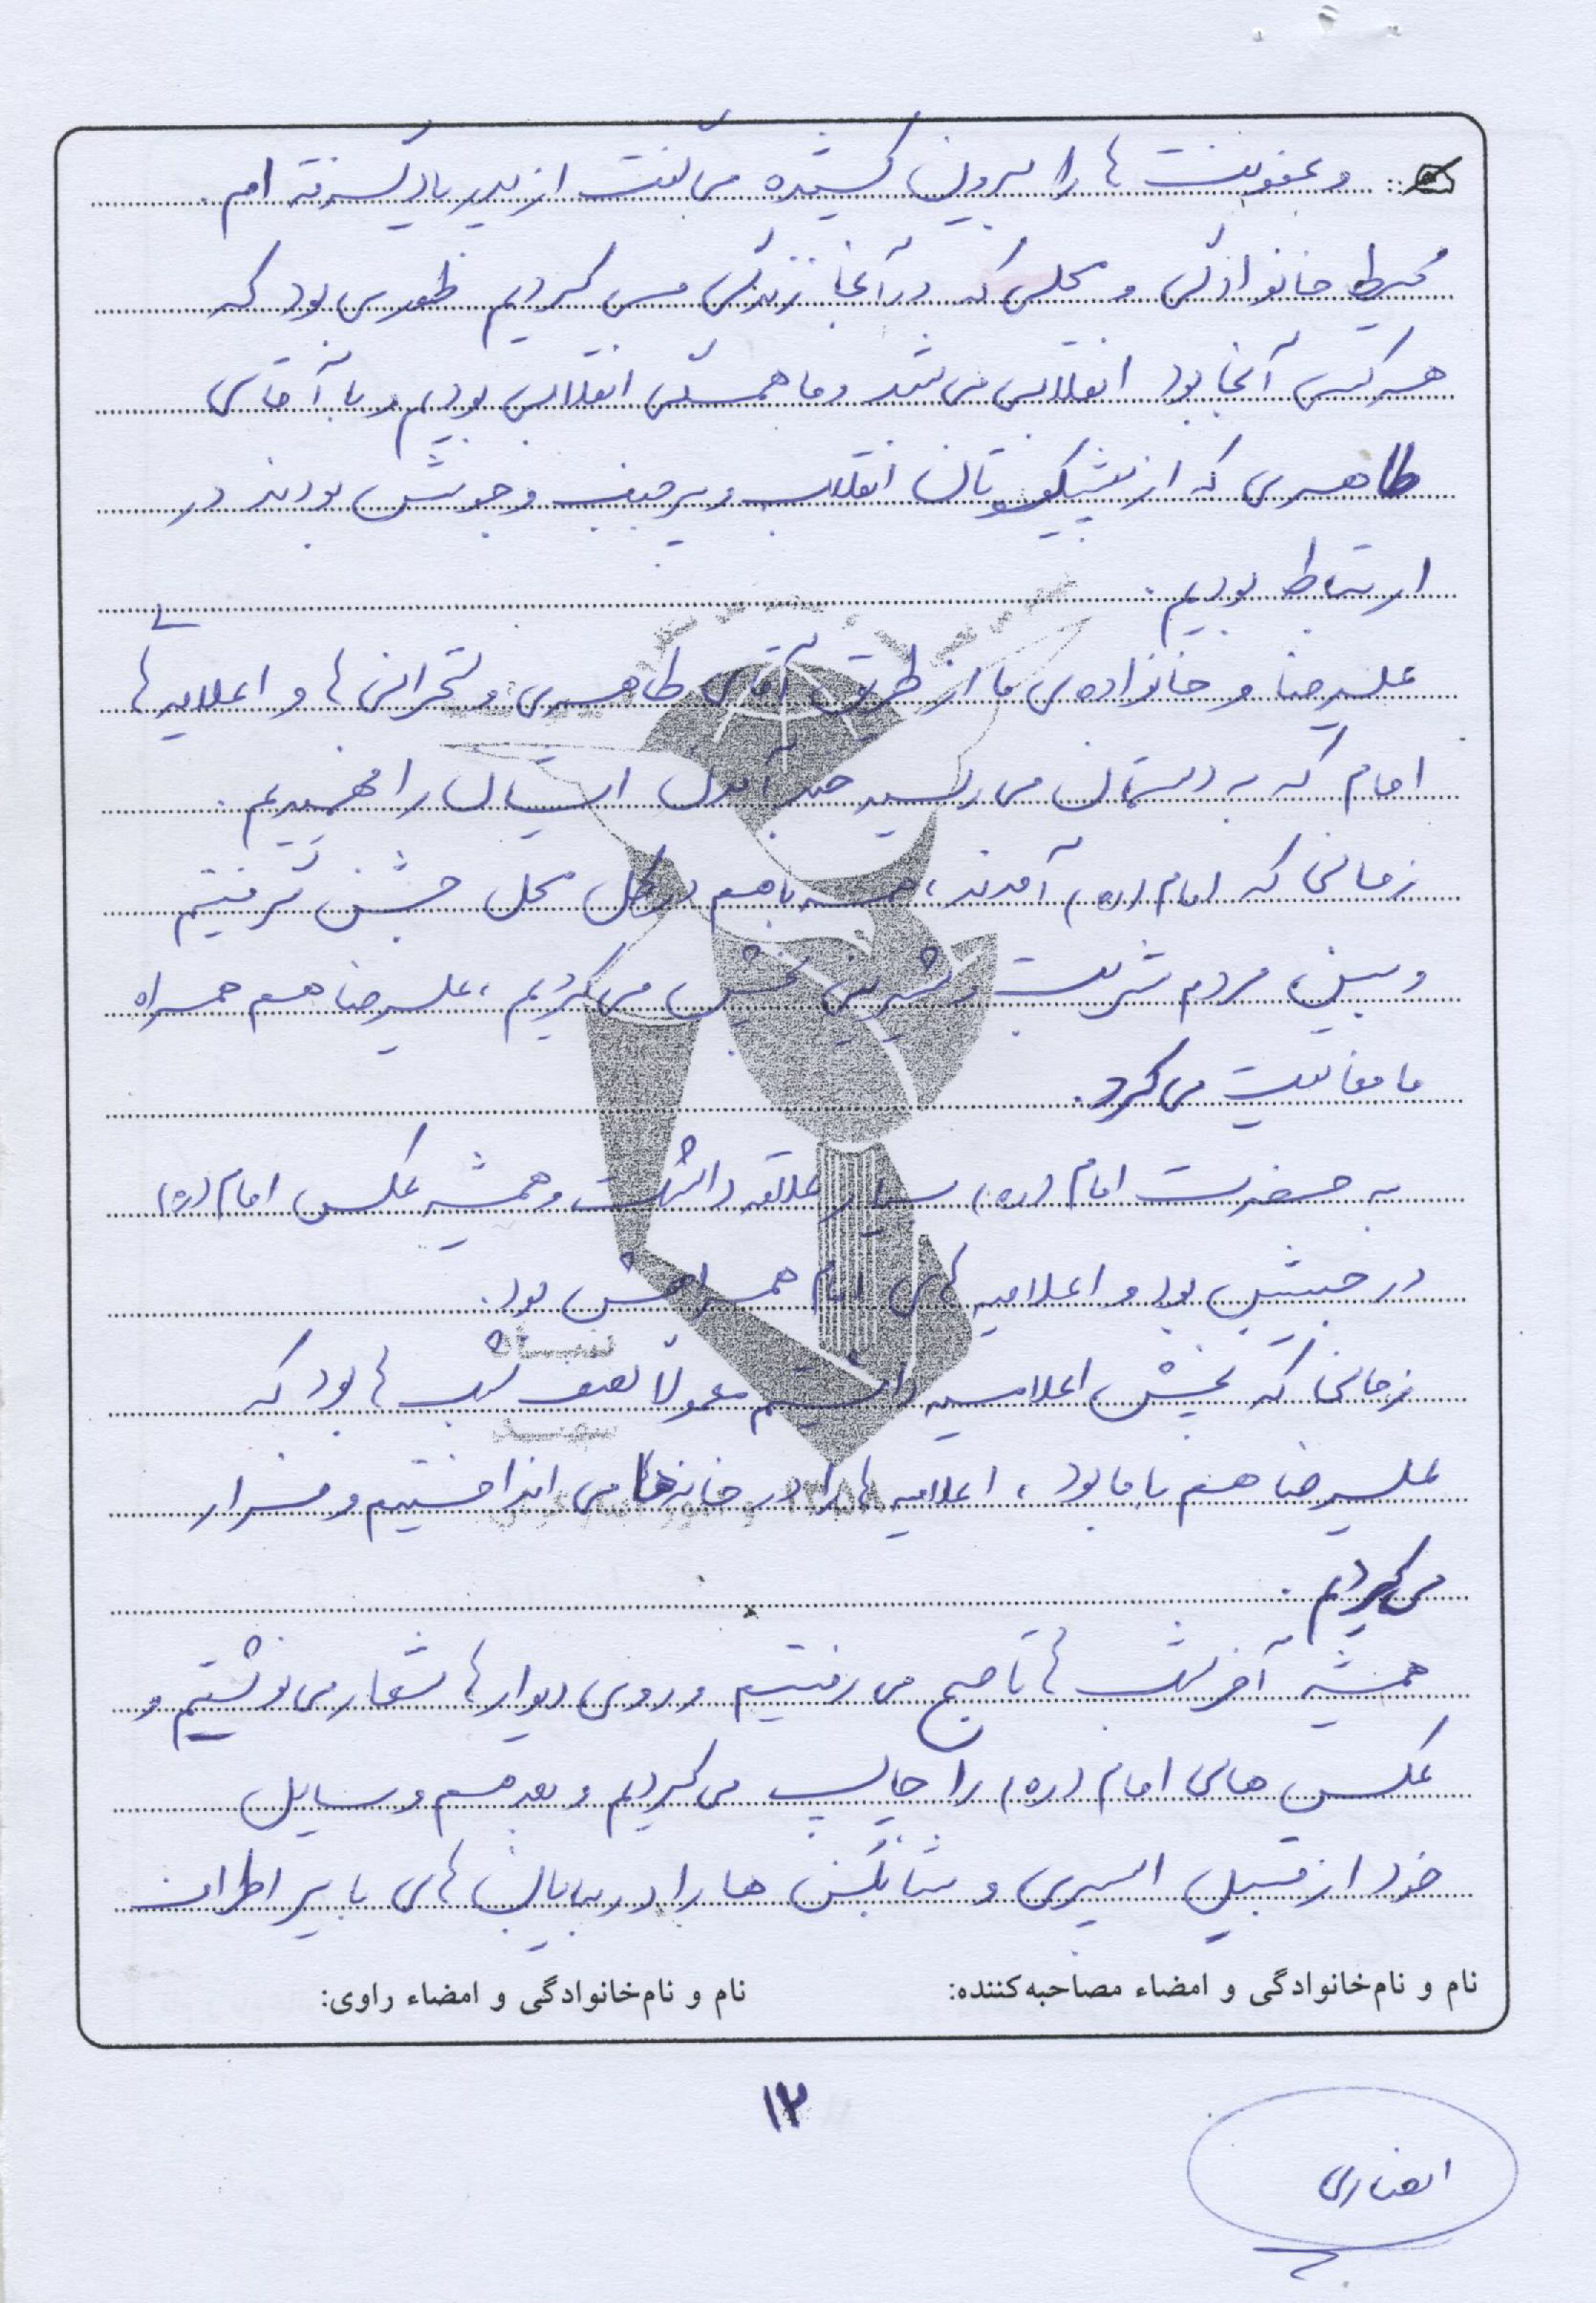 و عفونت ها را بیرون کشیده می گفت از پدر یاد گرفته ام.
محیط خانوادگی و محلی که در آنجا زندگی می کردیم طوری بود که
هر کس آنجا بود انقلابی می شد و ما همگی انقلابی بودیم و با آقای
طاهری که از پیشکسوتان انقلاب و پرجنب و جوش بودند در
ارتباط بودیم.
علیرضا و خانواده ی ما از طریق آقای طاهری و سخنرانی ها و اعلامیه های
امام که به دستمان می رسید خبر آمدن ایشان را فهمیدیم.
زمانی که امام (ره) آمدند، همه با هم در کل محل جشن گرفتیم
و بین مردم شربت و شیرینی پخش می کردیم، علیرضا هم همراه
ما فعالیت می کرد.
به حضرت امام (ره) بسیار علاقه داشت و همیشه عکس امام (ره)
در جیبش بود و اعلامیه های امام همراهش بود.
زمانی که پخش اعلامیه داشتیم معمولاً نصف شب ها بود که
علیرضا هم با ما بود، اعلامیه ها را در خانه ها می انداختیم و فرار
می کردیم.
همیشه آخر شب ها تا صبح می رفتیم و روی دیوارها شعار می نوشتیم و
عکس های امام (ره) را چاپ می کردیم و بعد هم وسایل
خود از قبیل اسپری و شابلن ها را در بیابان های بایر اطراف
نام و نام‌خانوادگی و امضاء مصاحبه‌کننده: نام و نام‌خانوادگی و امضاء راوی:
۱۲
انصاری